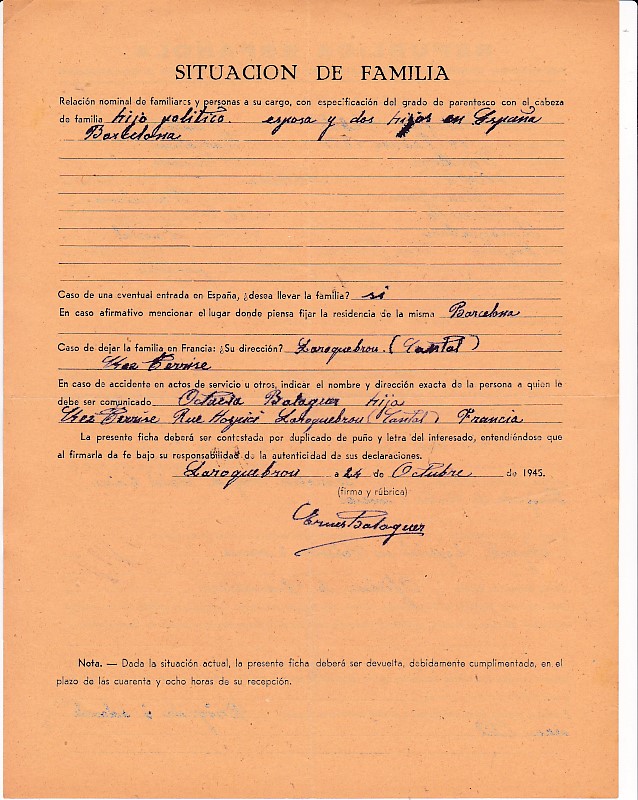 SITUACION DE FAMILIA
Relación nominal de familiares y personas a su cargo, con especificación del grado de parentesco con el cabeza
de familia hijo politico. esposa y dos hijos en España
Barcelona
Caso de una eventual entrada en España, ¿desea llevar la familia? si
En caso afirmativo mencionar el lugar donde piensa fijar la residencia de la misma Barcelona
Caso de dejar la familia en Francia: ¿Su dirección? Laroquebrou (Cantal)
En caso de accidente en actos de servicio u otros, indicar el nombre y dirección exacta de la persona a quien le
debe ser comunicado Octavia Balaguer hija
Rue Laroquebrou (Cantal) Francia
La presente ficha deberá ser contestada por duplicado de puño y letra del interesado, entendiéndose que
al firmarla da fe bajo su responsabilidad de la autenticidad de sus declaraciones.
Laroquebrou a 24 de Octubre de 1945.
(firma y rúbrica)
Ernes Balaguer
Nota. — Dada la situación actual, la presente ficha deberá ser devuelta, debidamente cumplimentada, en el
plazo de las cuarenta y ocho horas de su recepción.